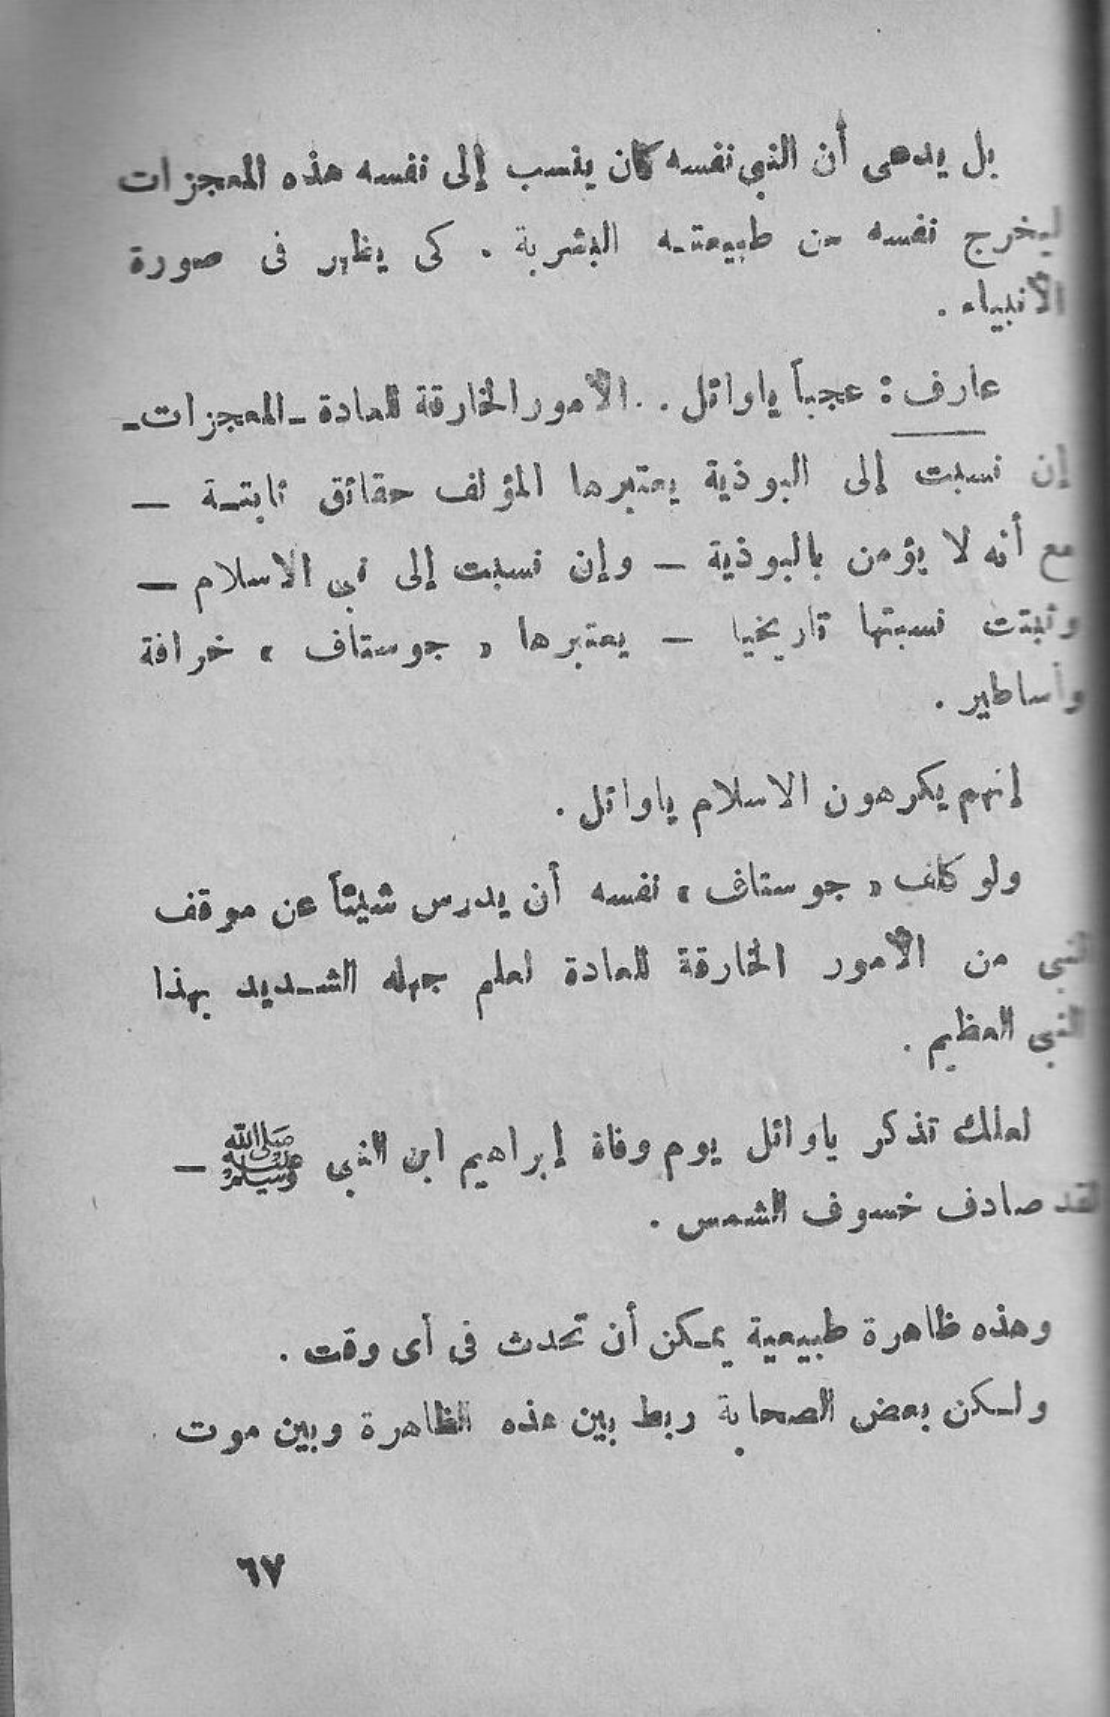 بل يدعى أن النبي نفسه كان ينسب إلى نفسه هذه المعجزات
ليخرج نفسه من طبيعتـه البشرية . كى يظهر فى صورة
الأنبياء .
عارف : عجباً ياوائل . . الأمور الخارقة للعادة ـ المعجزات ـ
إن نسبت إلى البوذية يعتبرها المؤلف حقائق ثابتـة —
مع أنه لا يؤمن بالبوذية — وإن نسبت إلى نبى الاسلام —
وثبتت نسبتها تاريخيا — يعتبرها « جوستاف » خرافة
وأساطير .
إنهم يكرهون الاسلام ياوائل .
ولو كلف « جوستاف » نفسه أن يدرس شيئاً عن موقف
النبى من الأمور الخارقة للعادة لعلم جهله الشـديد بهذا
النبى العظيم .
لعلك تذكر ياوائل يوم وفاة إبراهيم ابن النبى ﷺ —
لقد صادف خسوف الشمس .
وهذه ظاهرة طبيعية يمـكن أن تحدث فى أى وقت .
ولـكن بعض الصحابة ربط بين هذه الظاهرة وبين موت
٦٧